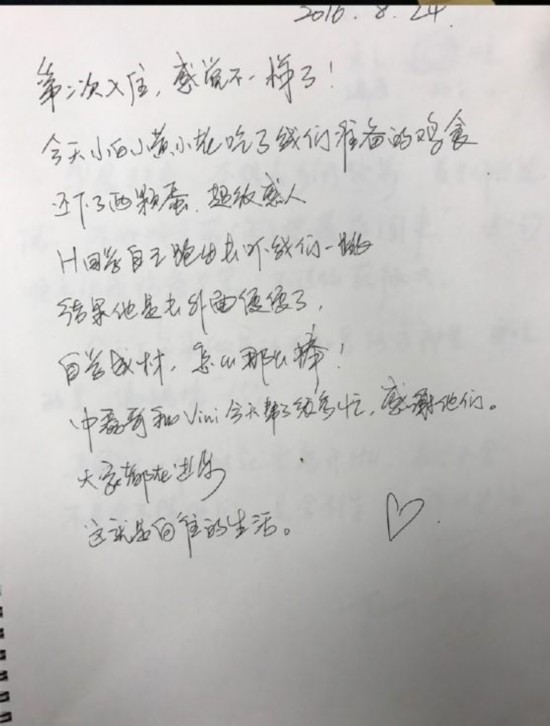 2016.8.24.
第二次入住,感觉不一样了!
今天小白小黄小花吃了我们准备的鸡食
还下了两颗蛋.超级感人
H同学自己跑出去吓我们一跳
结果他是去外面便便了,
自学成材,怎么那么棒!
中磊哥和Vini今天帮了很多忙,感谢他们。
大家都在进步
这就是向往的生活。